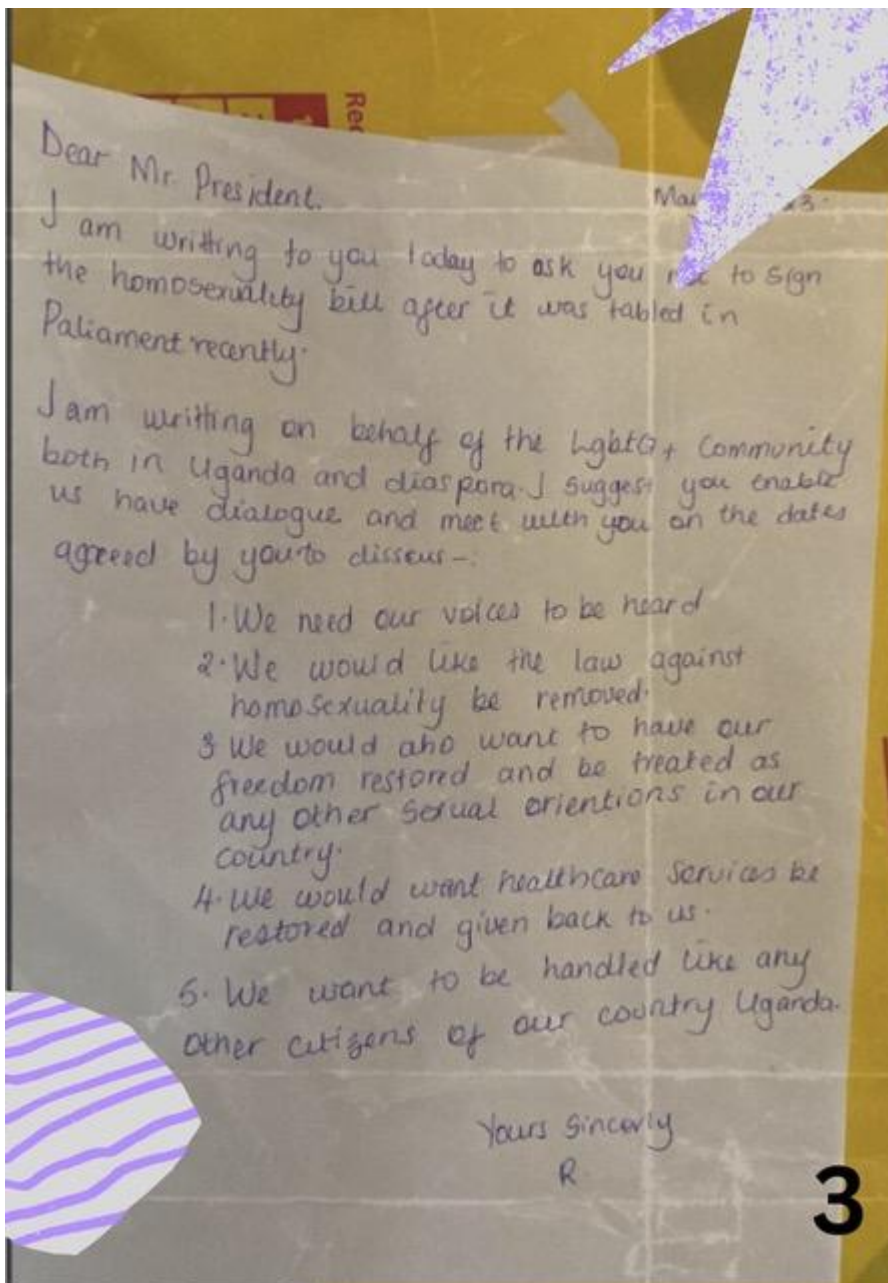 Rec
Dear Mr. President.
I am writting to you today to ask you to sign
the homosexuality bill after it was tabled in
Paliament recently.
I am writting on behalf of the LgbtQ+ Community
both in Uganda and diaspora. I suggest you enable
us have dialogue and meet with you on the dates
agreed by you to disscus -:
1. We need our voices to be heard
2. We would like the law against
homosexuality be removed.
3 We would also want to have our
freedom restored and be treated as
any other Sexual orientions in our
country.
4. We would want healthcare Services be
restored and given back to us.
5. We want to be handled like any
other citizens of our country Uganda.
Yours Sincerly
R
3